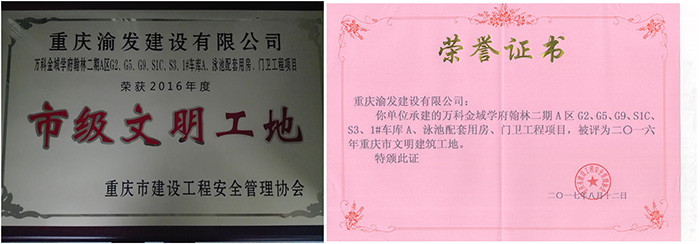 重庆渝发建设有限公司
万科金域学府翰林二期A区G2、G5、G9、S1C、S3、1#车库A、泳池配套用房、门卫工程项目
荣获2016年度
市级文明工地
重庆市建设工程安全管理协会
荣誉证书
重庆渝发建设有限公司:
你单位承建的万科金域学府翰林二期A区G2、G5、G9、S1C、
S3、1#车库A、泳池配套用房、门卫工程项目，被评为二〇一六
年重庆市文明建筑工地。
特颁此证
二〇一七年八月十二日